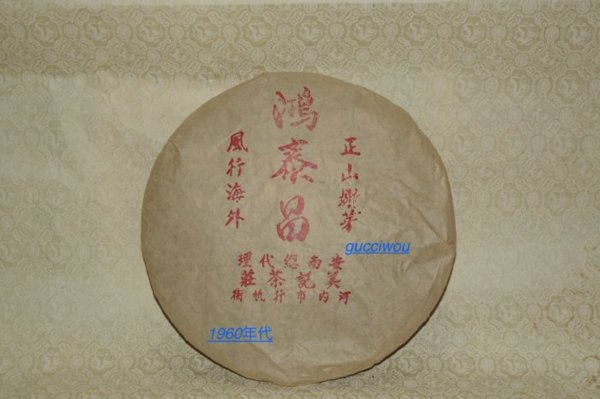 正山嫩芽
鴻泰昌
風行海外
安南總代理
美記茶莊
河内市行帆街
gucciwou
1960年代